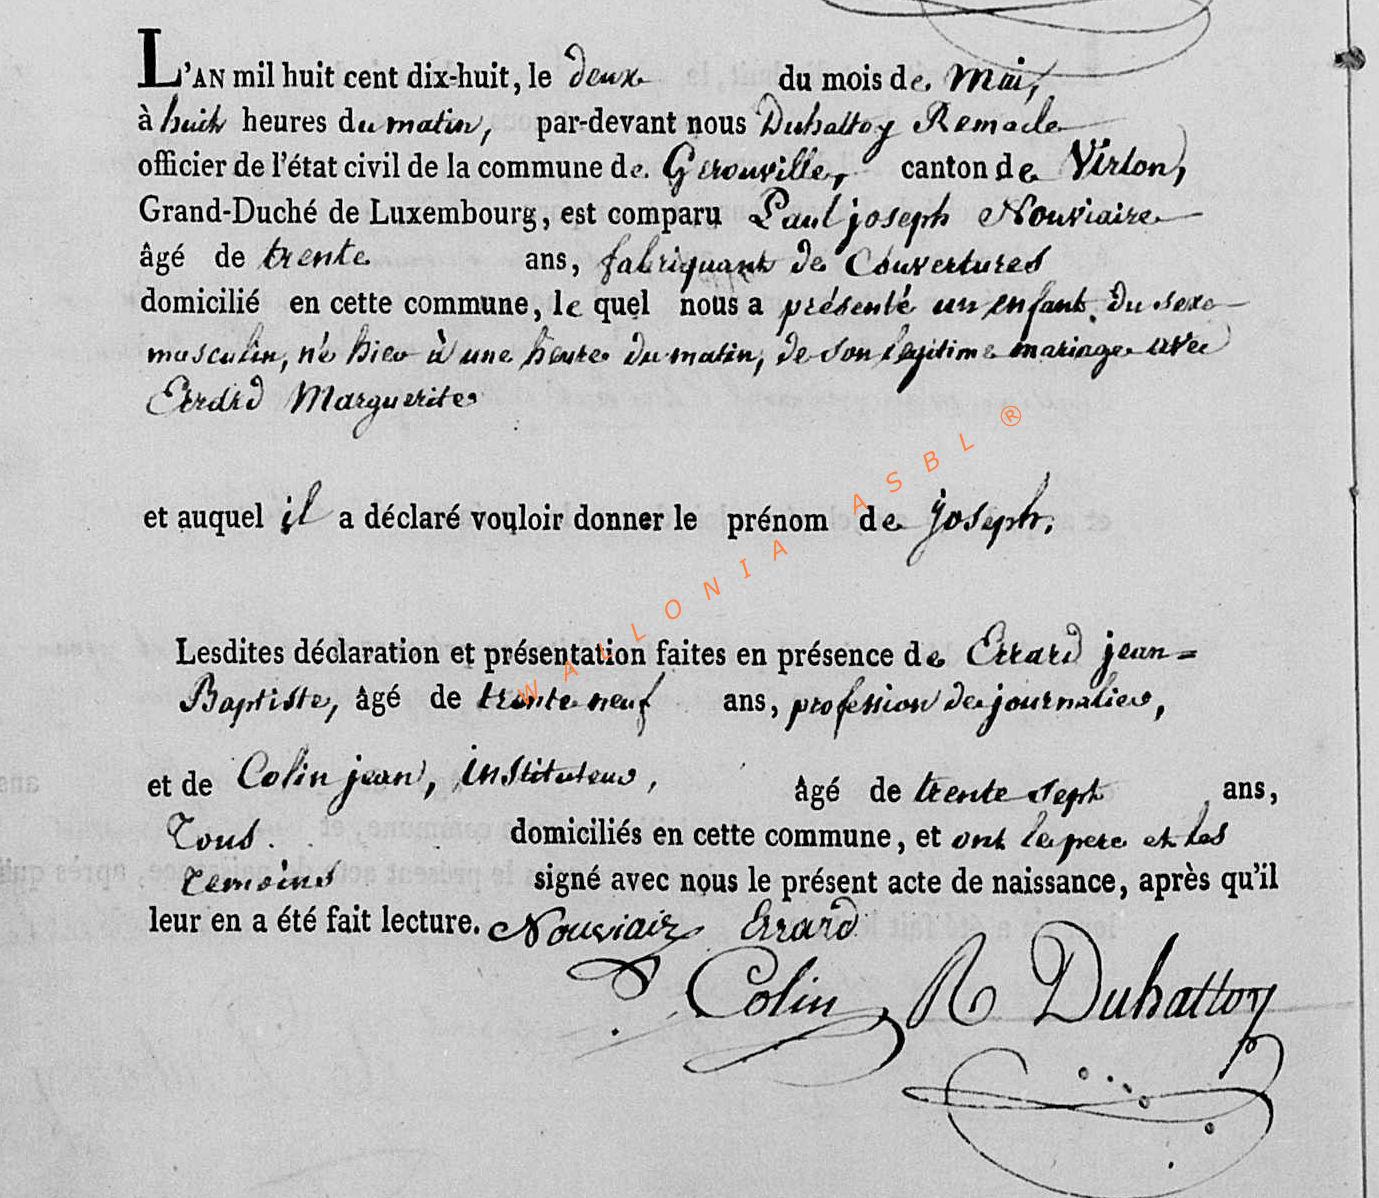 L'AN mil huit cent dix-huit, le deux du mois de Mai,
à huit heures du matin, par-devant nous Duhattoy Remacle
officier de l'état civil de la commune de Gerouville, canton de Virton,
Grand-Duché de Luxembourg, est comparu Paul joseph Nouviaire
âgé de trente ans, fabriquant de Couvertures
domicilié en cette commune, le quel nous a présenté un enfant du sexe
masculin, né hier à une heure du matin, de son legitime mariage avec
Errard Marguerite
et auquel il a déclaré vouloir donner le prénom de joseph.
Lesdites déclaration et présentation faites en présence de Errard jean=
Baptiste, âgé de trente neuf ans, profession de journalier,
et de Colin jean, instituteur, âgé de trente sept ans,
Tous domiciliés en cette commune, et ont le pere et les
temoins signé avec nous le présent acte de naissance, après qu'il
leur en a été fait lecture. Nouviair Errard
Colin R Duhattoy
WALLONIA ASBL ®